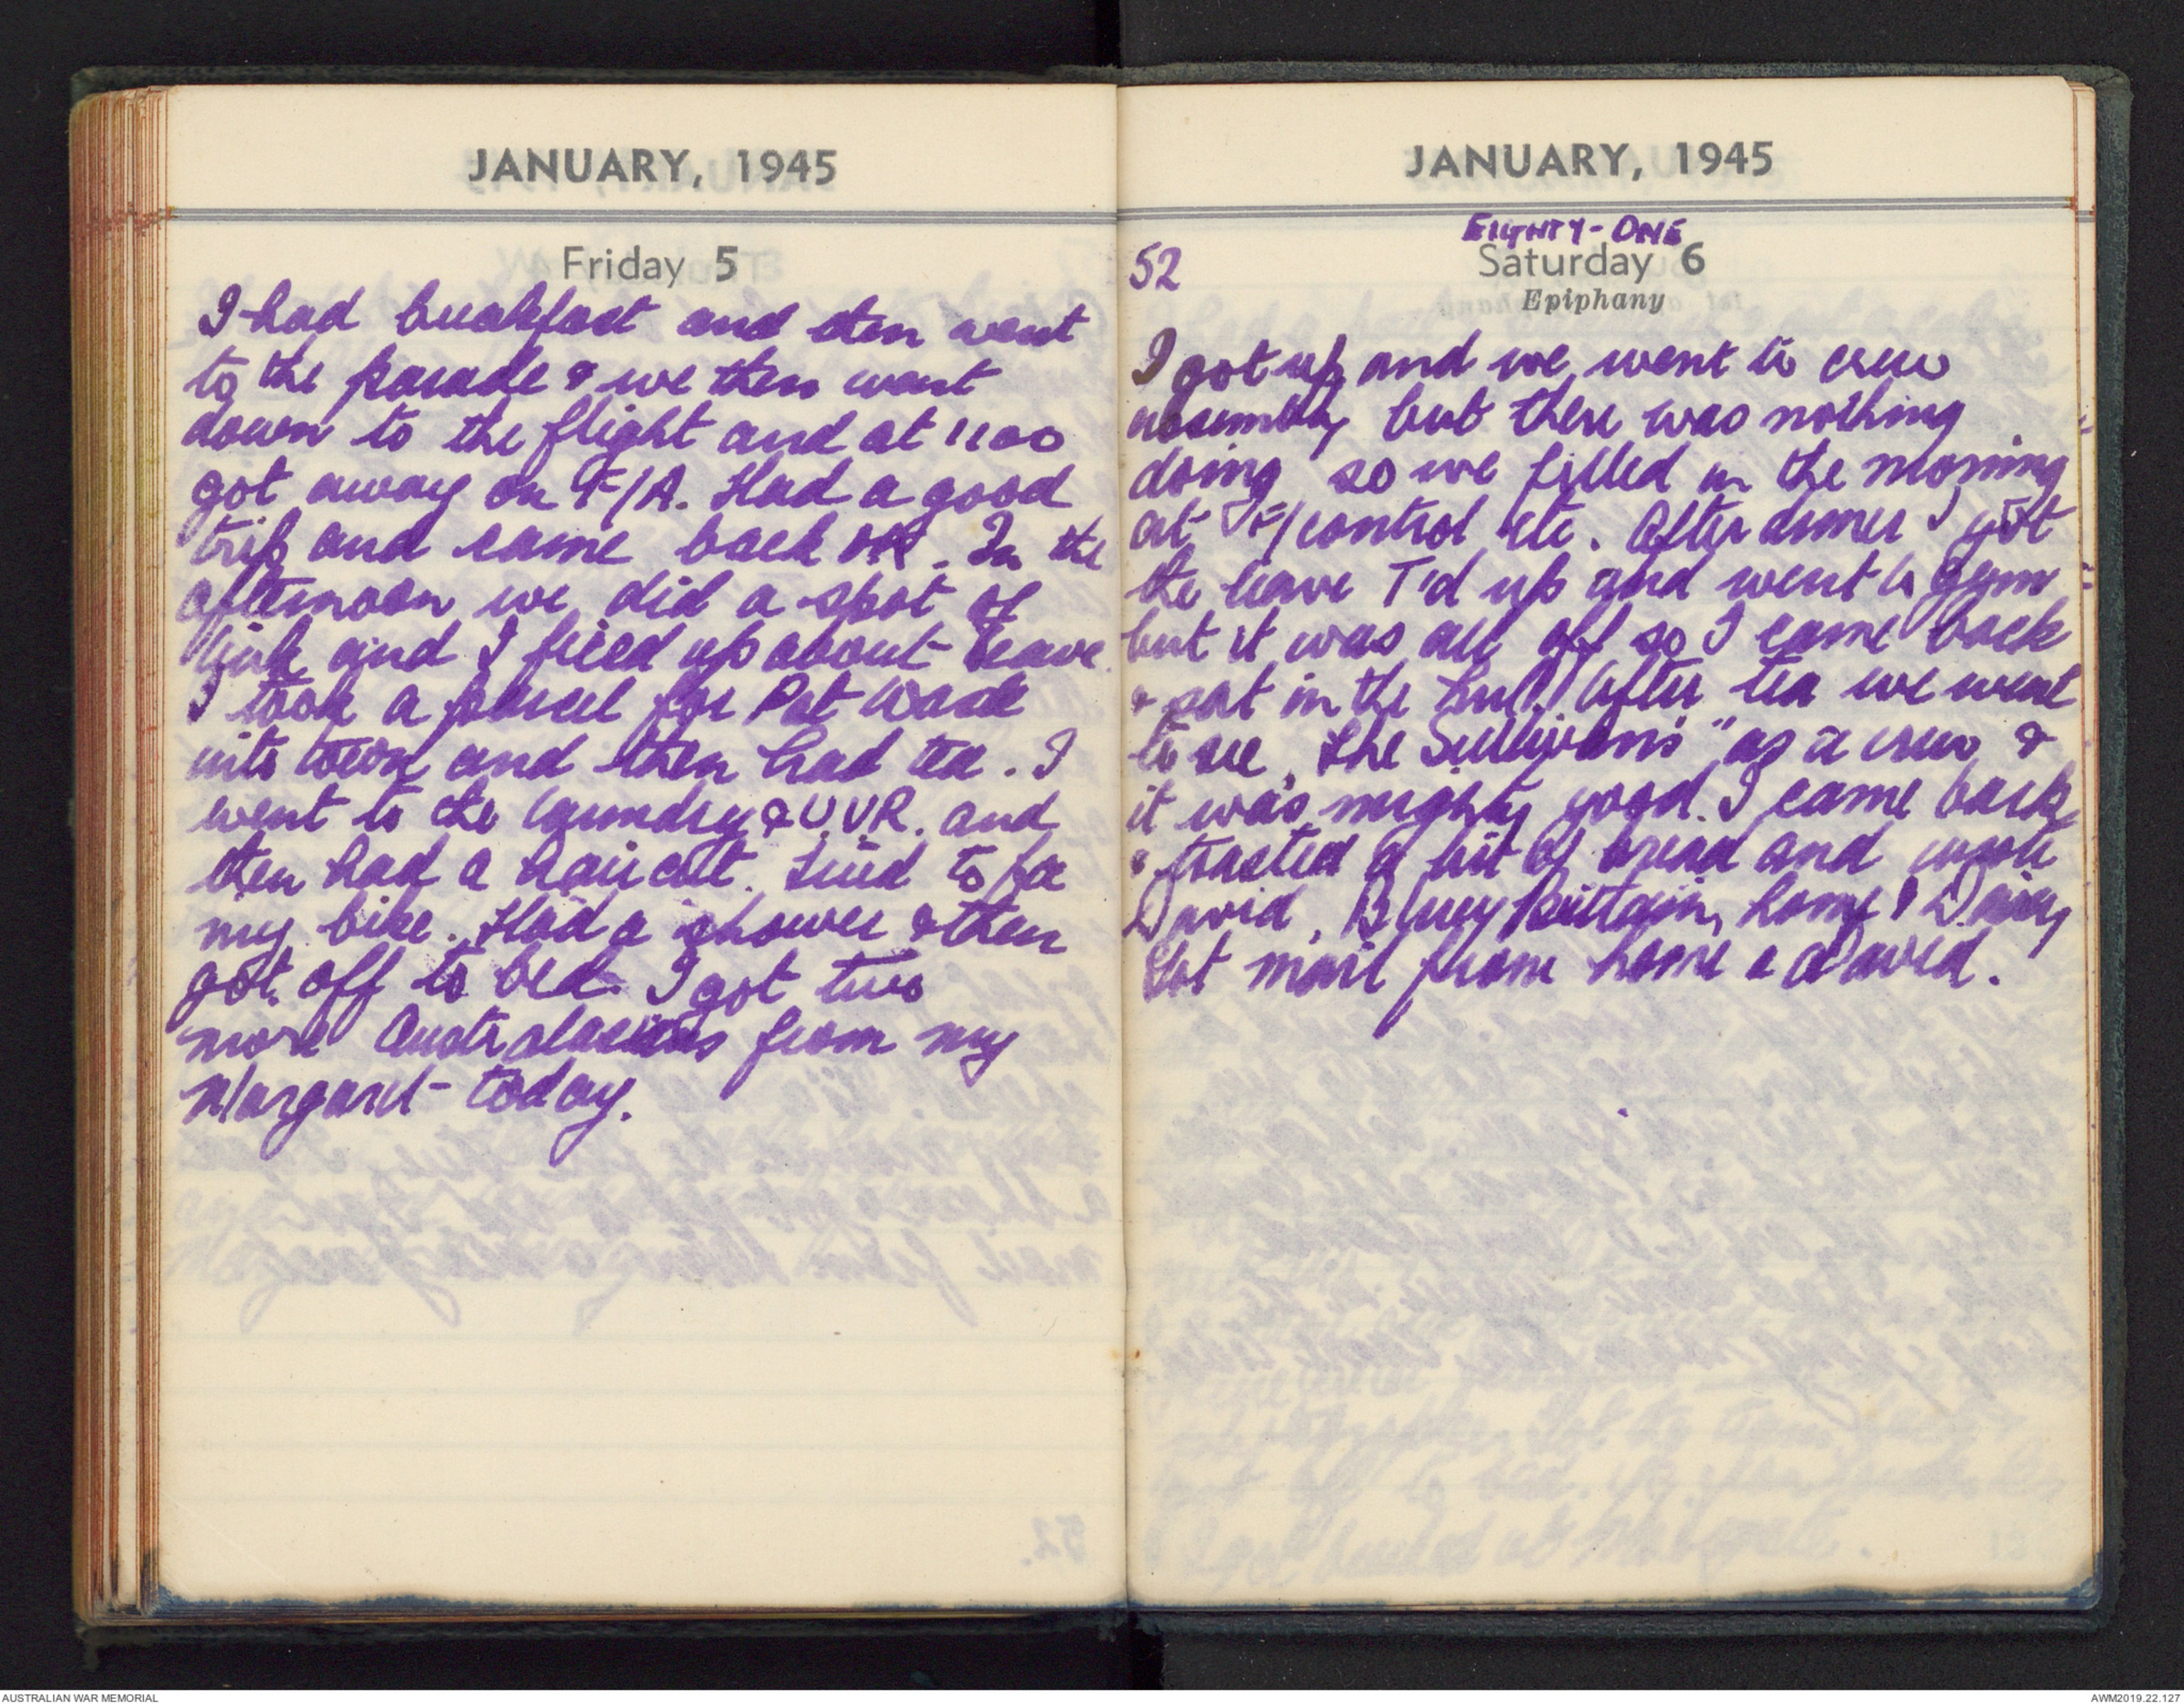 JANUARY, 1945
Friday 5
I had breakfast and then went
to the parade & we then went
down to the flight and at 1100
got away on F/A. Had a good
trip and came back OK. In the
afternoon we did a spot of
link and I fixed up about leave.
I took a parcel for Pat Wade
into town and then had tea. I
went to the laundry & U.V.R. and
then had a haircut. Tried to fix
my bike. Had a shower & then
got off to bed. I got two
more Australasians from my
Margaret today.
JANUARY, 1945
EIGHTY-ONE
52
Saturday 6
Epiphany
I got up and we went to crew
assembly but there was nothing
doing so we filled in the morning
at F/control etc. After dinner I got
the leave T'd up and went to gym
but it was all off so I came back
& sat in the hut. After tea we went
to see "the Sullivans" as a crew &
it was mighty good. I came back
& toasted a bit of bread and wrote
David, Bluey Brittain, home &
Got mail from home & David.
AUSTRALIAN WAR MEMORIAL
AWM2019.22.127